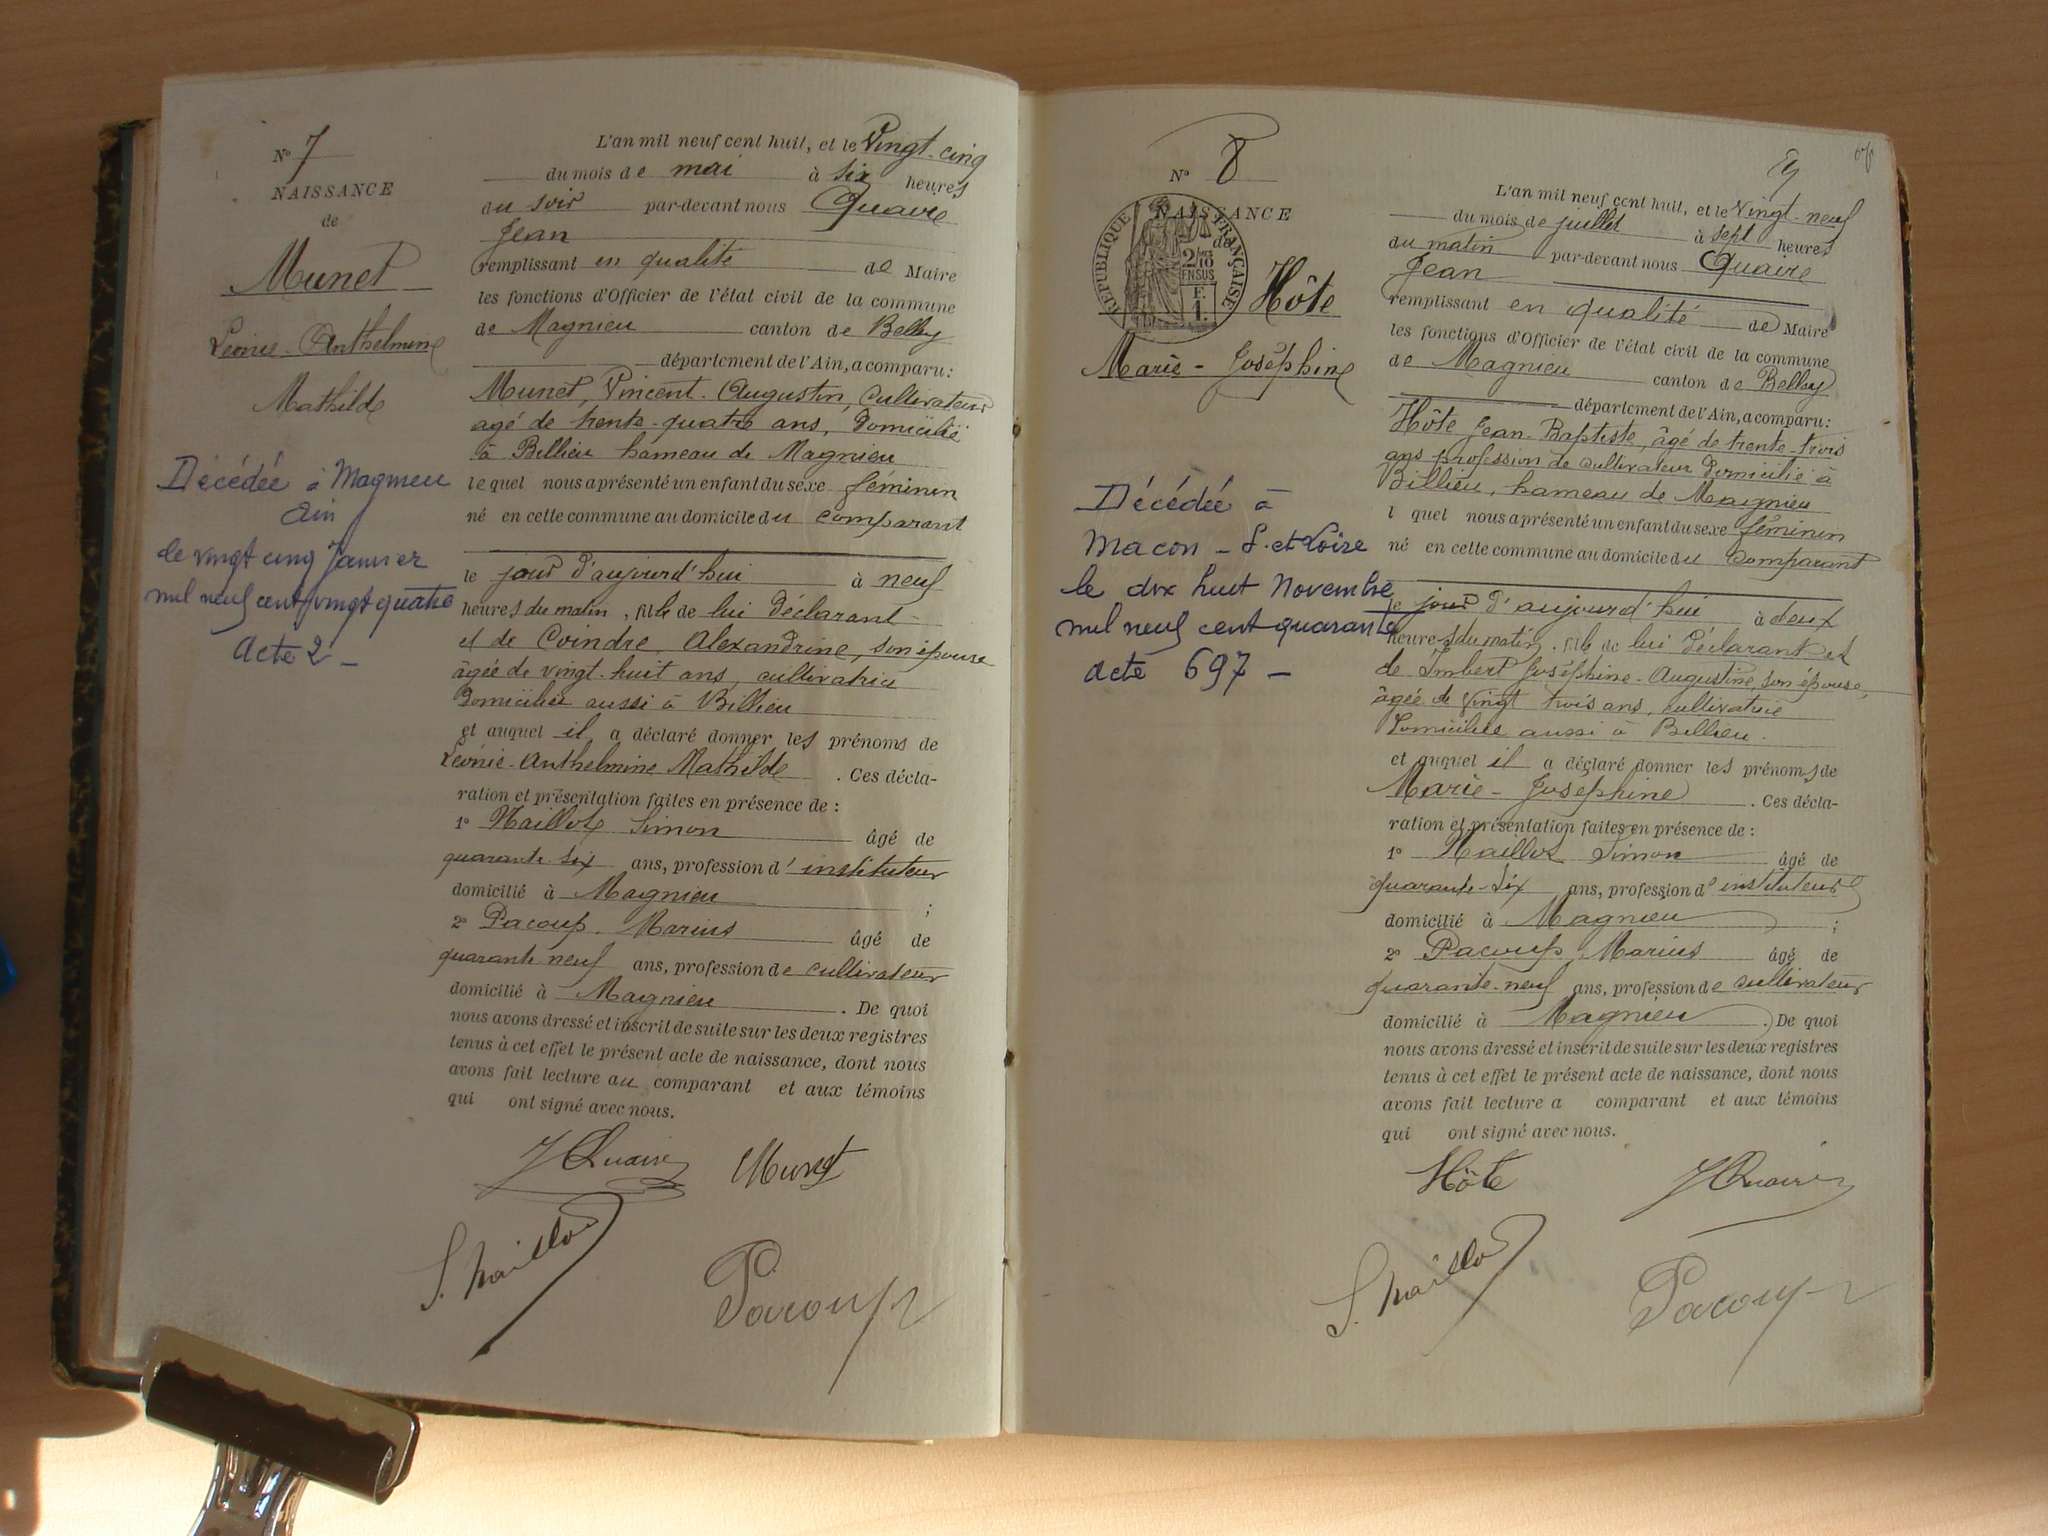 N° 7
NAISSANCE
de
Munet
Léonie-Anthelmine
Mathilde
Décédée à Magnieu
Ain
le vingt cinq Janvier
mil neuf cent vingt quatre
Acte 2 -
L'an mil neuf cent huit, et le Vingt-cinq
du mois de mai à six heures
du soir par-devant nous Quaire
Jean
remplissant en qualité de Maire
les fonctions d'Officier de l'état civil de la commune
de Magnieu canton de Belley
département de l'Ain, a comparu:
Munet, Vincent-Augustin, cultivateur
agé de trente-quatre ans, Domicilié
à Billieu hameau de Magnieu
lequel nous a présenté un enfant du sexe féminin
né en cette commune au domicile du comparant
le jour d'aujourd'hui à neuf
heures du matin, fille de lui Déclarant
et de Coindre Alexandrine, son épouse
âgée de vingt-huit ans, cultivatrice
Domiciliée aussi à Billieu
et auquel il a déclaré donner les prénoms de
Léonie-Anthelmine Mathilde . Ces décla-
ration et présentation faites en présence de :
1° Maillot Simon âgé de
quarante-six ans, profession d'instituteur
domicilié à Magnieu ;
2° Pacoup Marius âgé de
quarante-neuf ans, profession de cultivateur
domicilié à Magnieu . De quoi
nous avons dressé et inscrit de suite sur les deux registres
tenus à cet effet le présent acte de naissance, dont nous
avons fait lecture au comparant et aux témoins
qui ont signé avec nous.
J Quaire Munet
S. Maillot
Pacoup
N° 8
NAISSANCE
de
RÉPUBLIQUE FRANÇAISE
2/10
EN SUS
F.
1.
Hôte
Marie-Joséphine
Décédée à
Macon - S. et Loire
le dix huit Novembre
mil neuf cent quarante
acte 697 -
L'an mil neuf cent huit, et le Vingt-neuf
du mois de juillet à sept heures
du matin par-devant nous Quaire
Jean
remplissant en qualité de Maire
les fonctions d'Officier de l'état civil de la commune
de Magnieu canton de Belley
département de l'Ain, a comparu:
Hôte Jean-Baptiste, âgé de trente-trois
ans profession de cultivateur Domicilié à
Billieu, hameau de Magnieu
l quel nous a présenté un enfant du sexe féminin
né en cette commune au domicile du Comparant
le jour d'aujourd'hui à deux
heures du matin, fille de lui Déclarant et
de Imbert Joséphine-Augustine, son épouse,
âgée de vingt trois ans, cultivatrice
Domiciliée aussi à Billieu.
et auquel il a déclaré donner les prénoms de
Marie-Joséphine . Ces décla-
ration et présentation faites en présence de :
1° Maillot Simon âgé de
quarante-six ans, profession d'instituteur
domicilié à Magnieu ;
2° Pacoup Marius âgé de
quarante-neuf ans, profession de cultivateur
domicilié à Magnieu . De quoi
nous avons dressé et inscrit de suite sur les deux registres
tenus à cet effet le présent acte de naissance, dont nous
avons fait lecture a comparant et aux témoins
qui ont signé avec nous.
Hôte J Quaire
S. Maillot
Pacoup